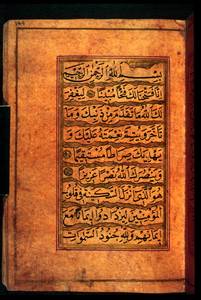 بسم الله الرحمن الرحيم
انا فتحنا لك فتحا مبينا ليغفر
لك الله ما تقدم من ذنبك وما
تاخر ويتم نعمته عليك و
يهديك صراطا مستقيما
وينصرك الله نصرا عزيزا
هو الذي انزل السكينة في قلوب
المؤمنين ليزدادوا ايمانا مع
ايمانهم ولله جنود السموات